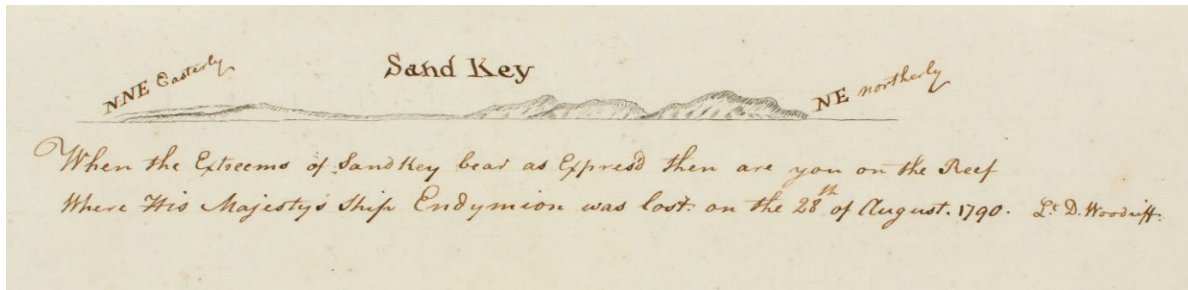 NNE Easterly
Sand Key
NE northerly
When the Extreems of Sand Key bear as Expres'd then are you on the Reef
Where His Majesty's Ship Endymion was lost. on the 28th of August. 1790. Lt. D. Woodriff.